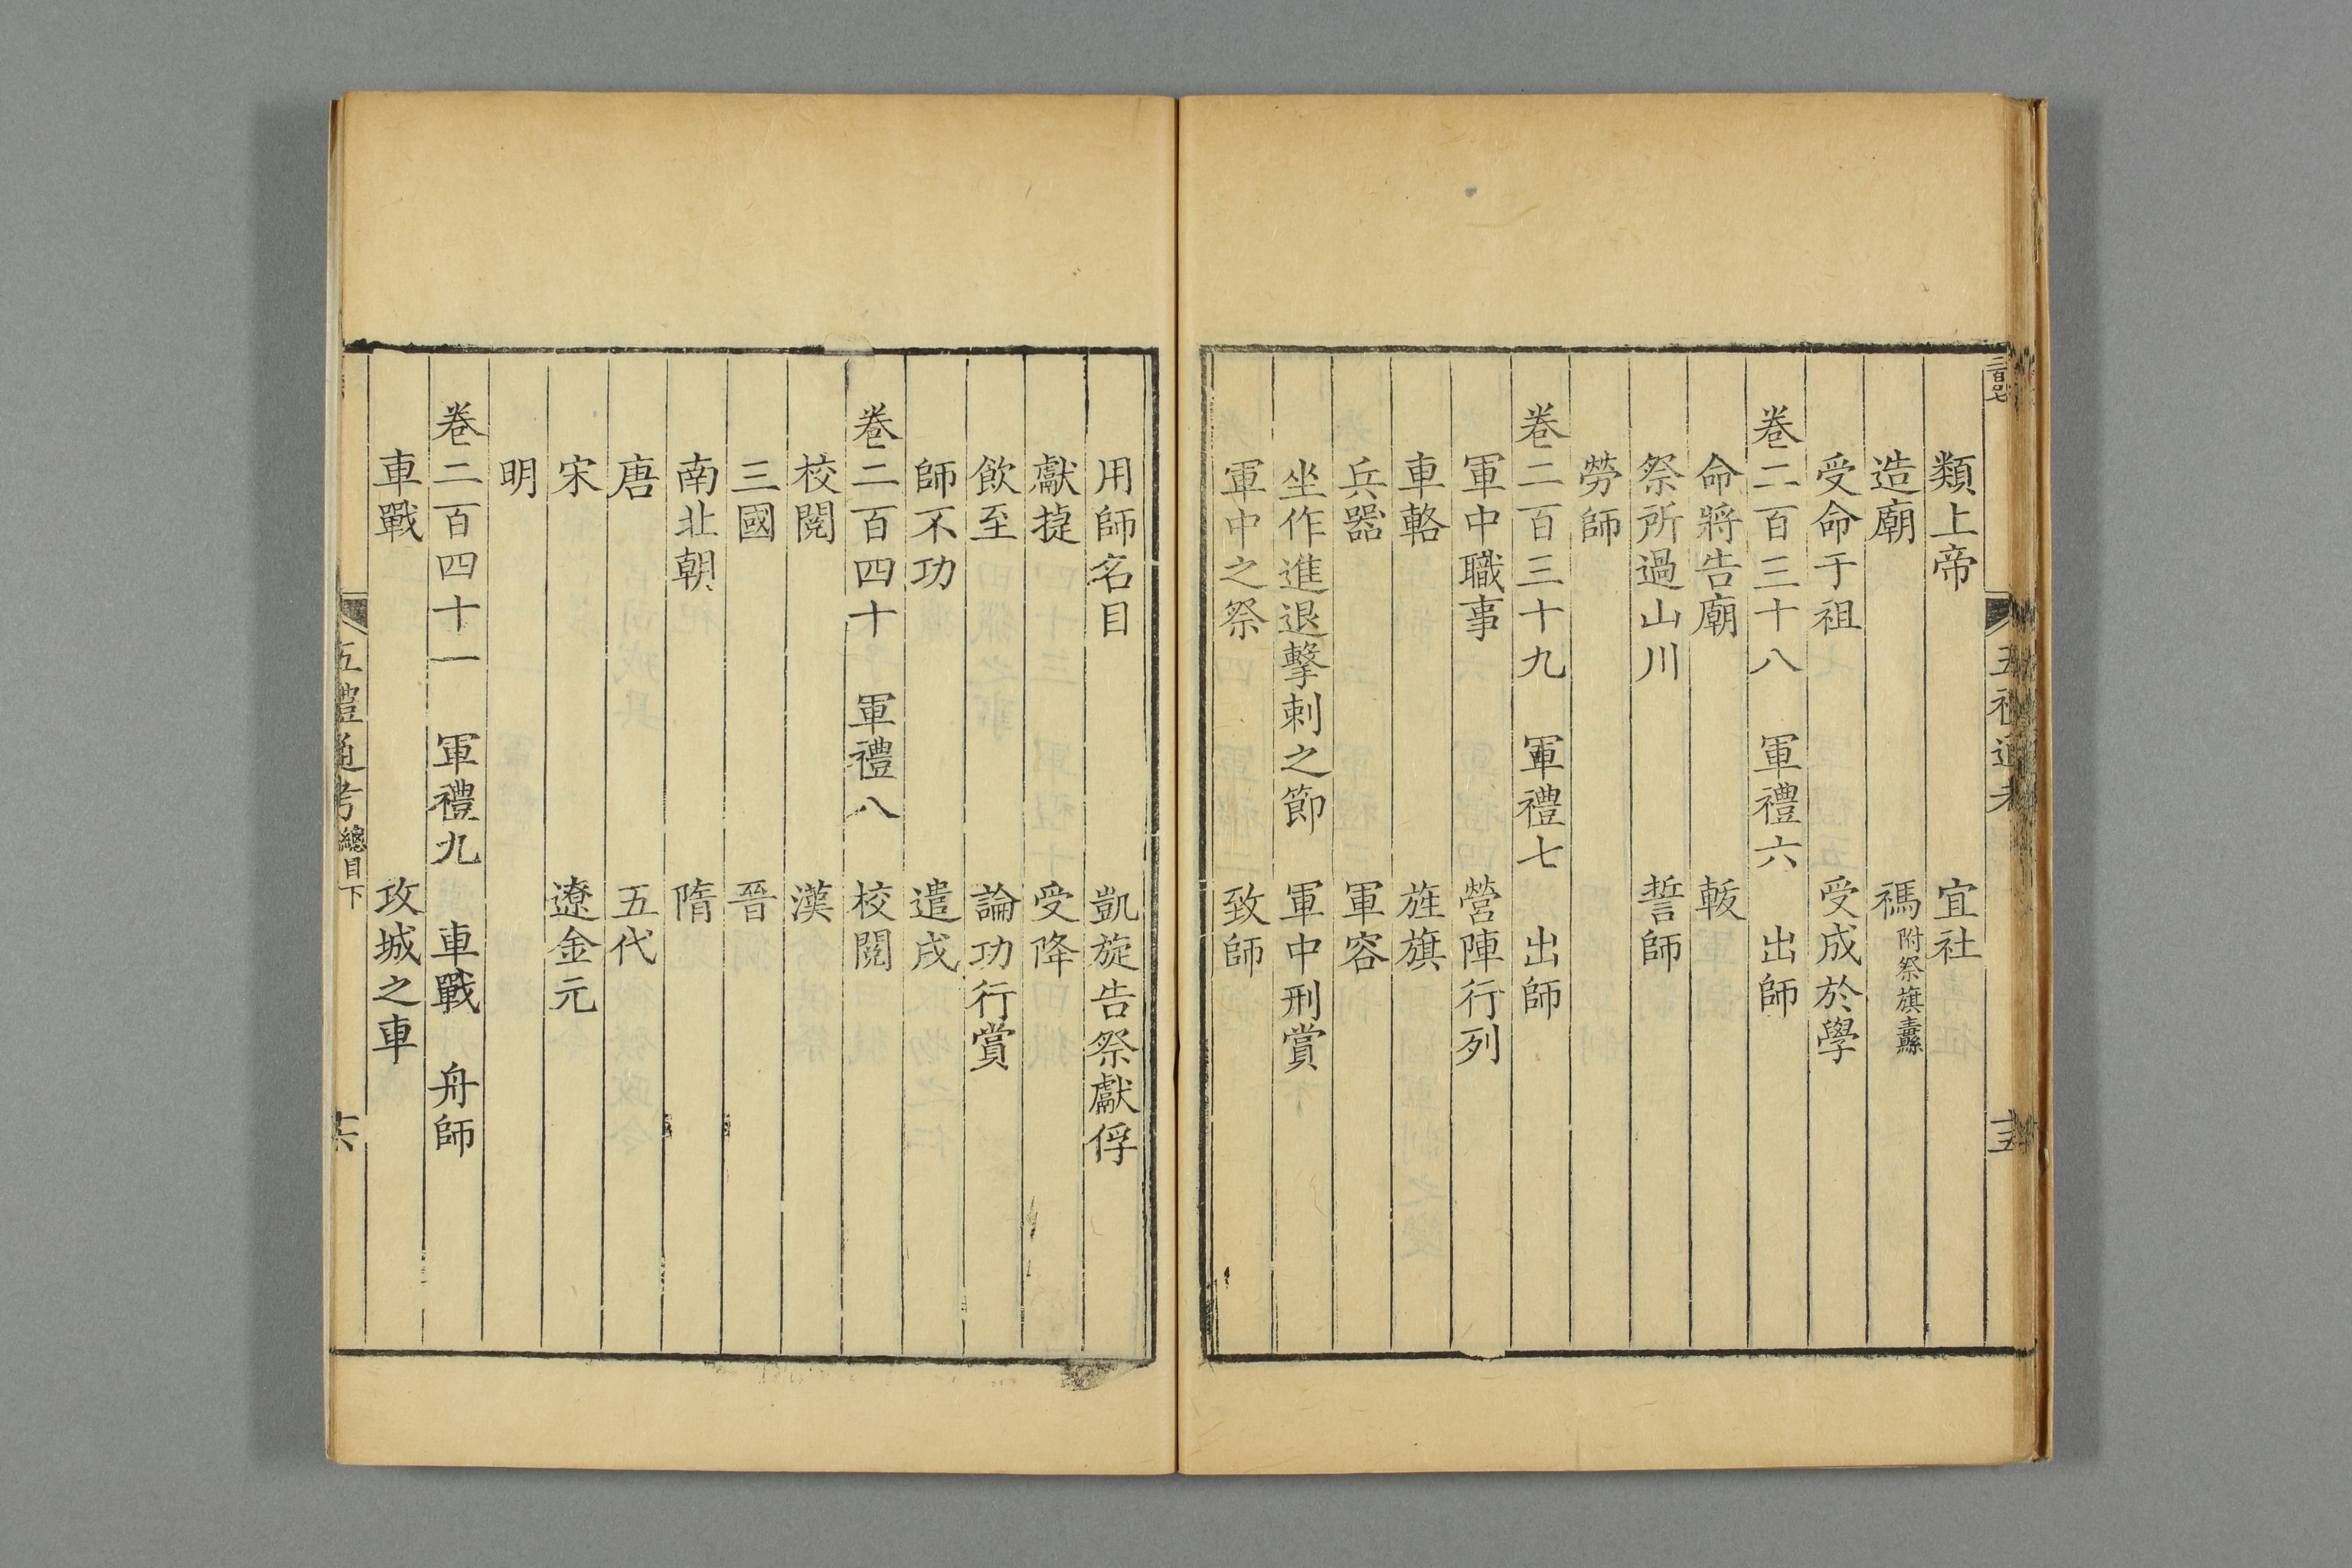 類上帝 宜社
造廟 禡附祭旗纛
受命于祖 受成於學
卷二百三十八 軍禮六 出師
命將告廟 軷
祭所過山川 誓師
勞師
卷二百三十九 軍禮七 出師
軍中職事 營陣行列
車輅 旌旗
兵器 軍容
坐作進退擊刺之節 軍中刑賞
軍中之祭 致師
用師名目 凱旋告祭獻俘
獻捷 受降
飲至 論功行賞
師不功 遣戍
卷二百四十 軍禮八 校閱
校閱 漢
三國 晉
南北朝 隋
唐 五代
宋 遼金元
明
卷二百四十一 軍禮九 車戰 舟師
車戰 攻城之車
五禮通考 總目下 十六